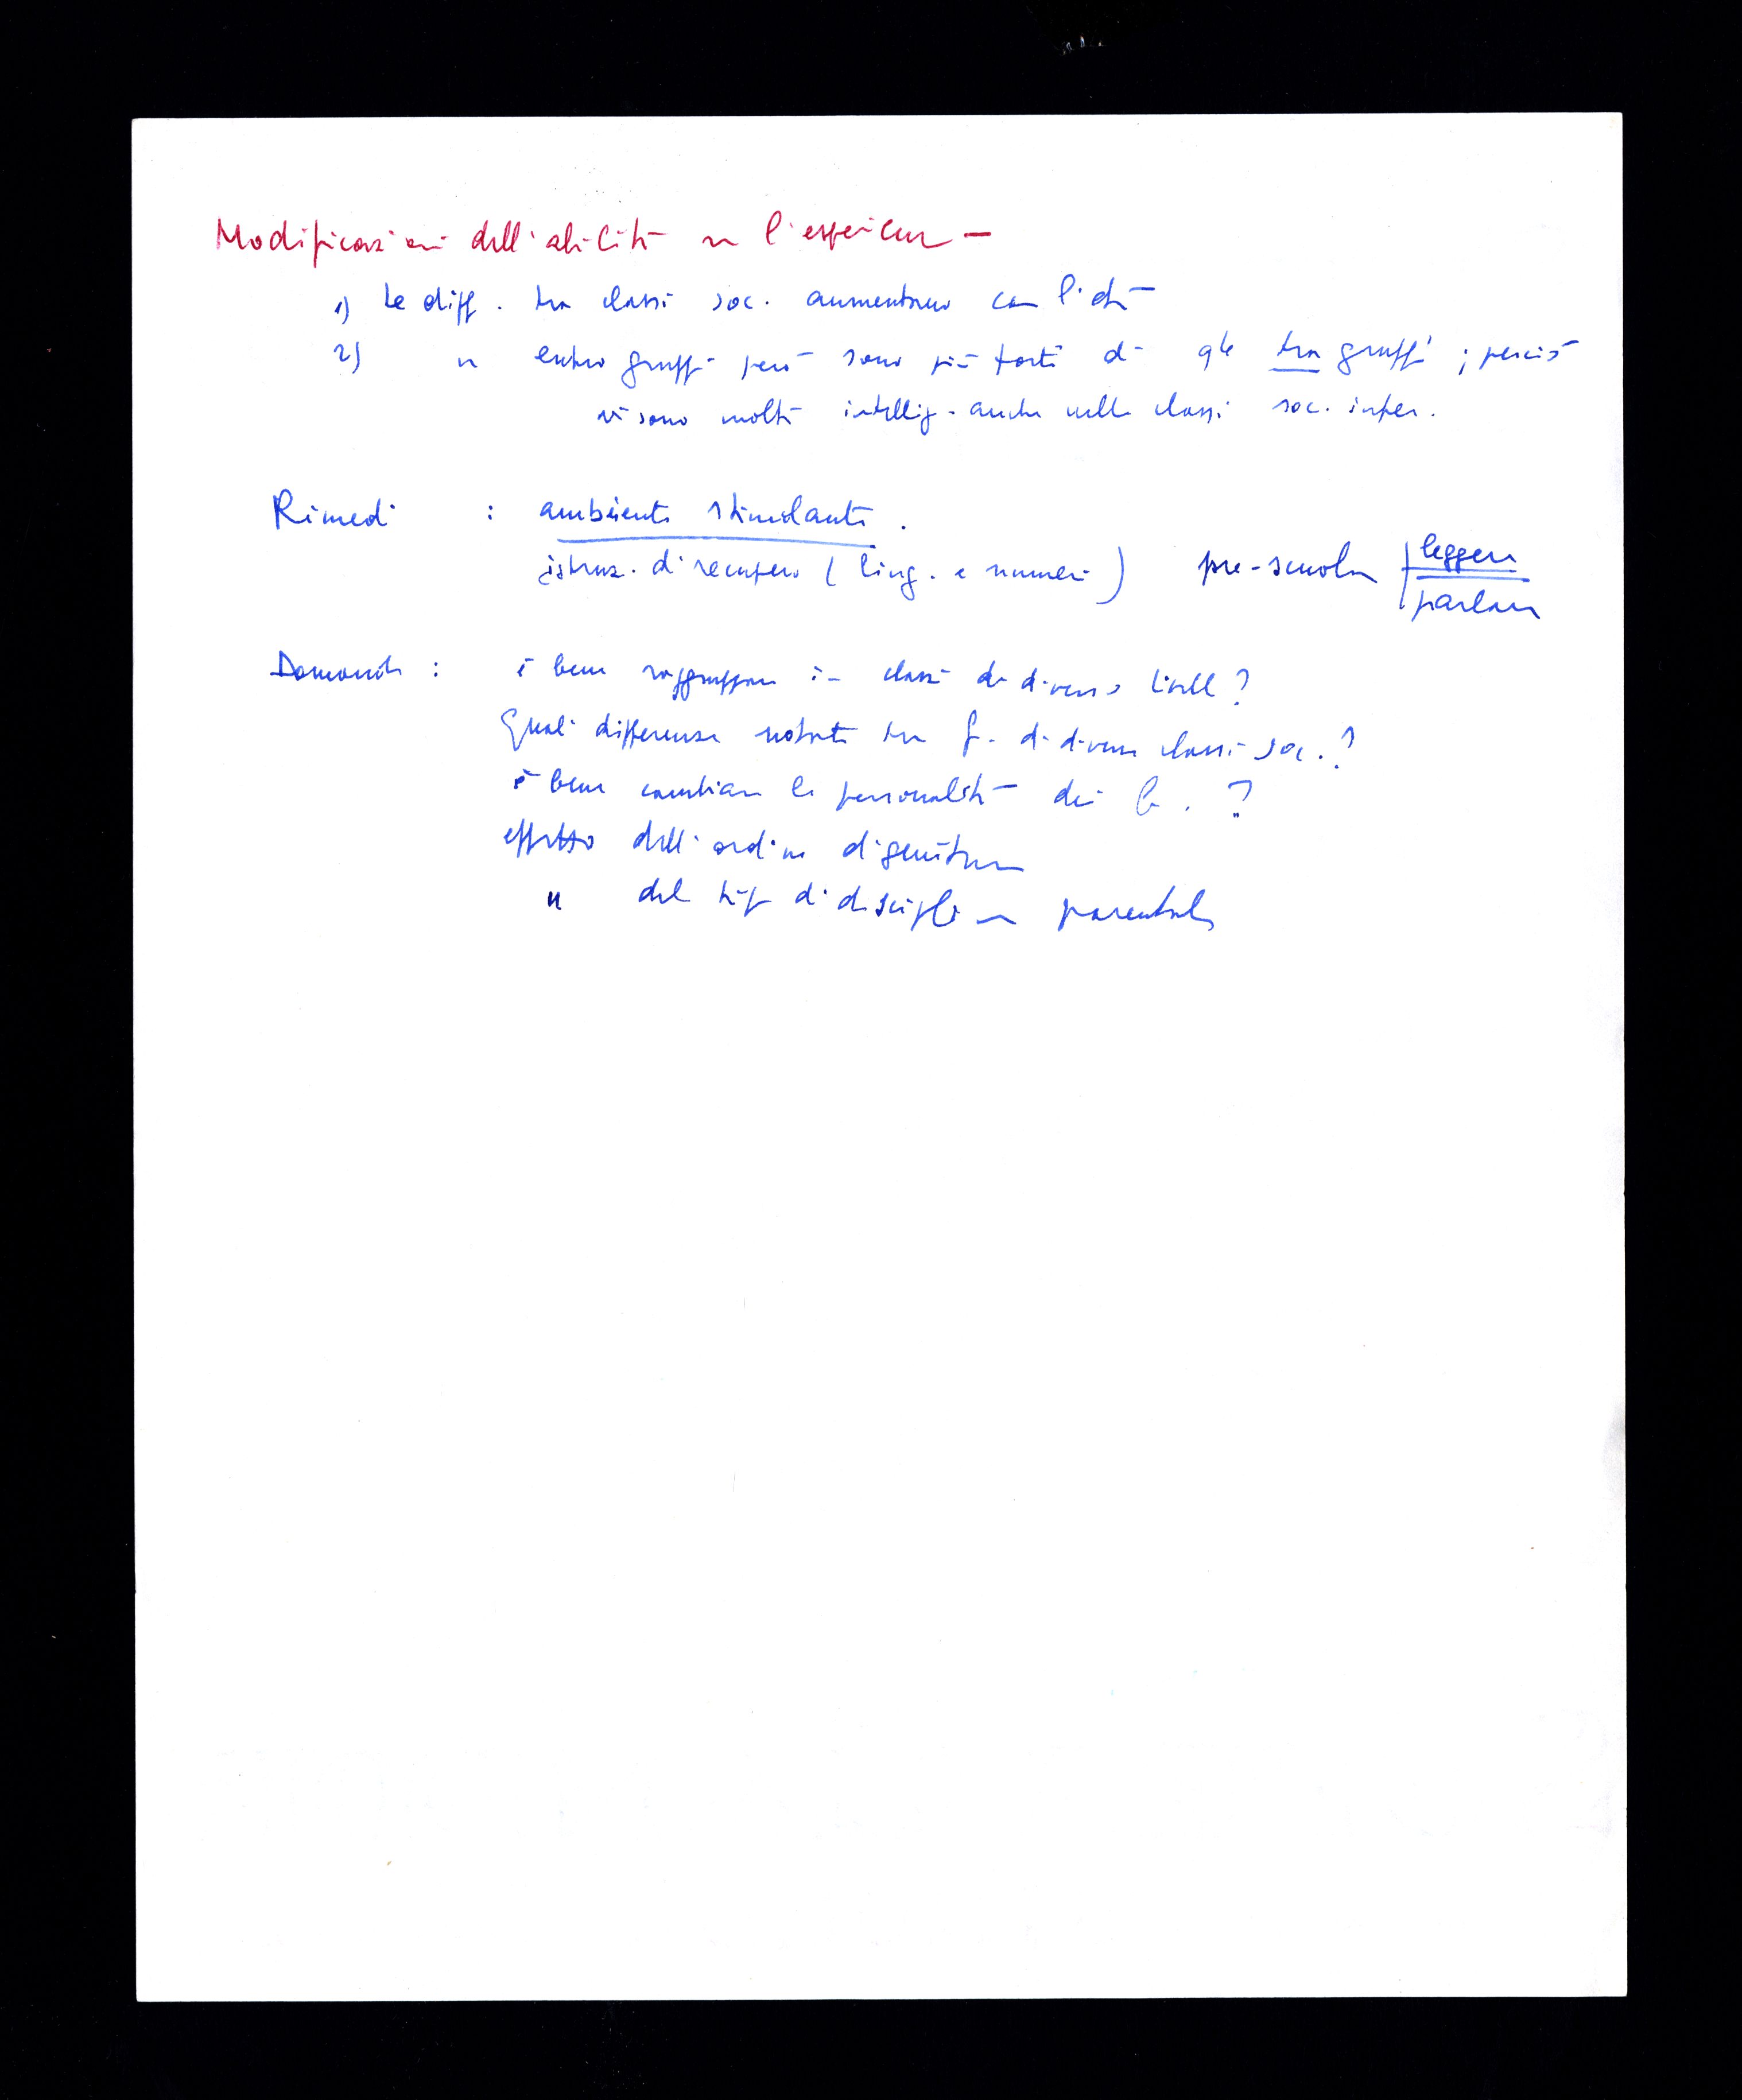 Modificazioni dell'abilità l'esperienza —
1) Le diff. tra classi soc. aumentano con l'età
2) " entro gruppi però sono più forti di qle tra gruppi ; perciò
vi sono molti intellig. anche nelle classi soc. infer.
Rimedi : ambiente stimolante .
istruz. di recupero ( ling. e numeri ) pre-scuola leggere
parlare
Domande : è bene raggruppare in classi di diverso livello ?
Quali differenze notate tra f. di diverse classi soc. ?
è bene cambiare la personalità dei b. ?
effetto dell'ordine di genitura
" del tipo di disciplina parentale